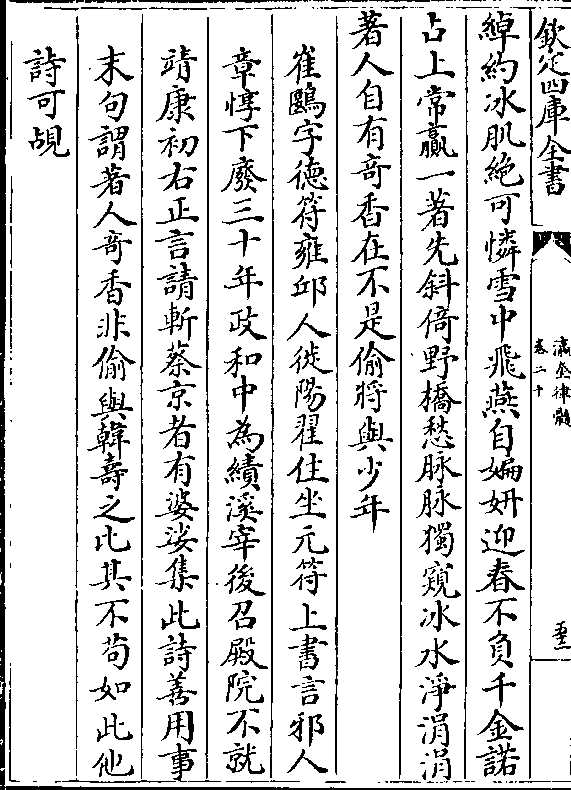 欽定四庫全書
瀛奎律髓
卷二十
綽約冰肌絶可憐雪中飛燕自媥姸迎春不負千金諾
占上常贏一著先斜倚野橋愁脉脉獨窺冰水淨涓涓
著人自有竒香在不是偷將與少年
崔鷗字徳符雍邱人徙陽翟住坐元符上書言邪人
章惇下廢三十年政和中為績溪宰後召殿院不就
靖康初右正言請斬蔡京者有婆娑集此詩善用事
末句謂著人竒香非偷與韓壽之比其不茍如此他
詩可覘